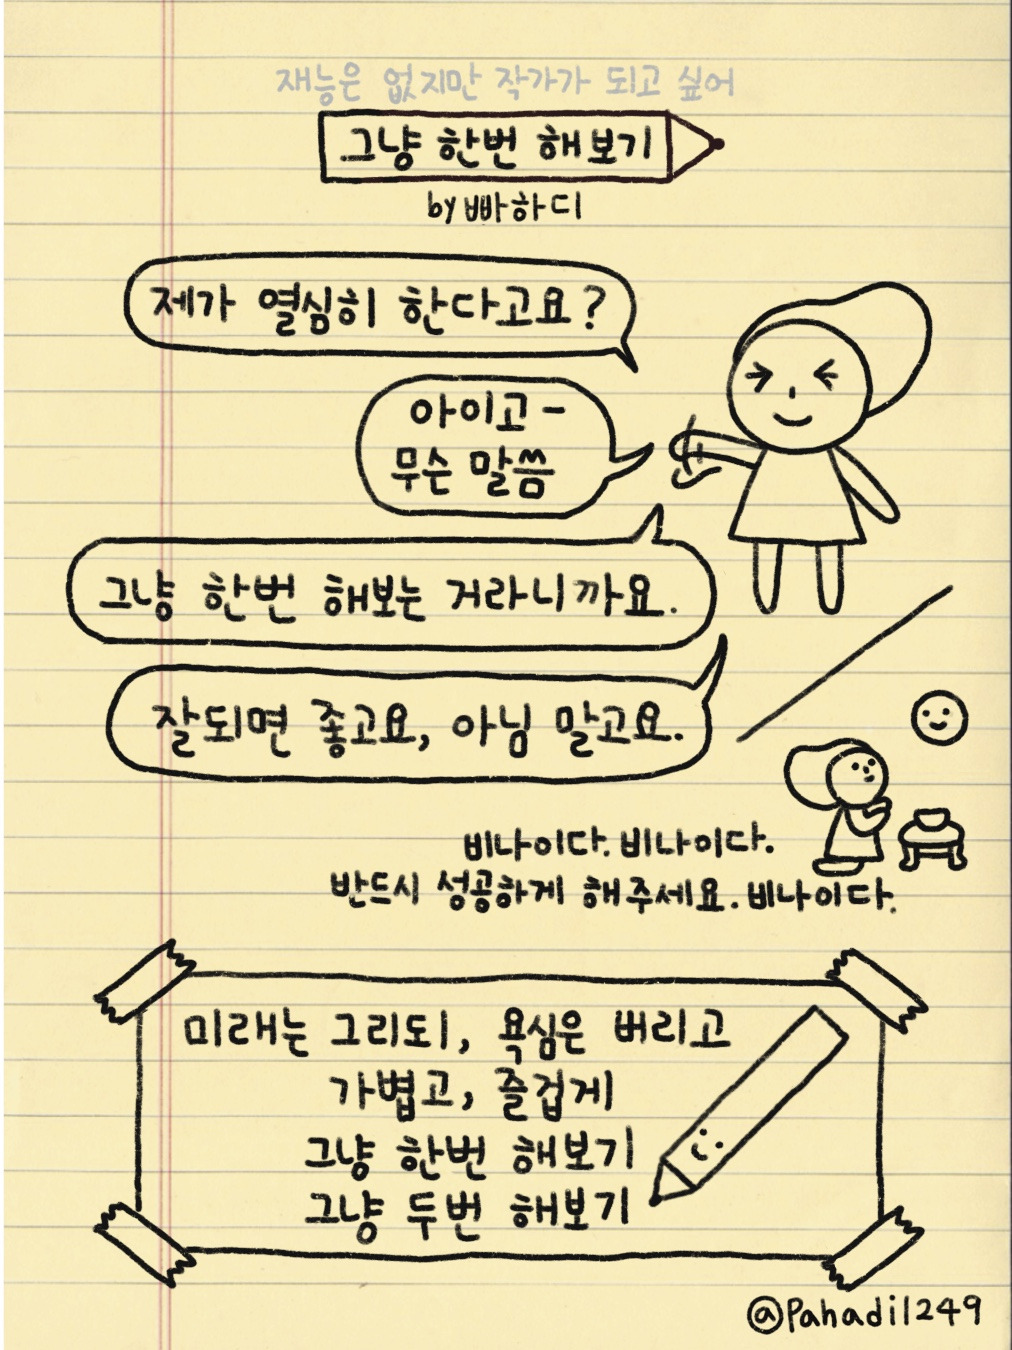 재능은 없지만 작가가 되고 싶어
그냥 한번 해보기
by 빠하디
제가 열심히 한다고요?
아이고-
무슨 말씀
그냥 한번 해보는 거라니까요.
잘되면 좋고요, 아님 말고요.
비나이다. 비나이다.
반드시 성공하게 해주세요. 비나이다.
미래는 그리되, 욕심은 버리고
가볍고, 즐겁게
그냥 한번 해보기
그냥 두번 해보기
@Pahadi1249